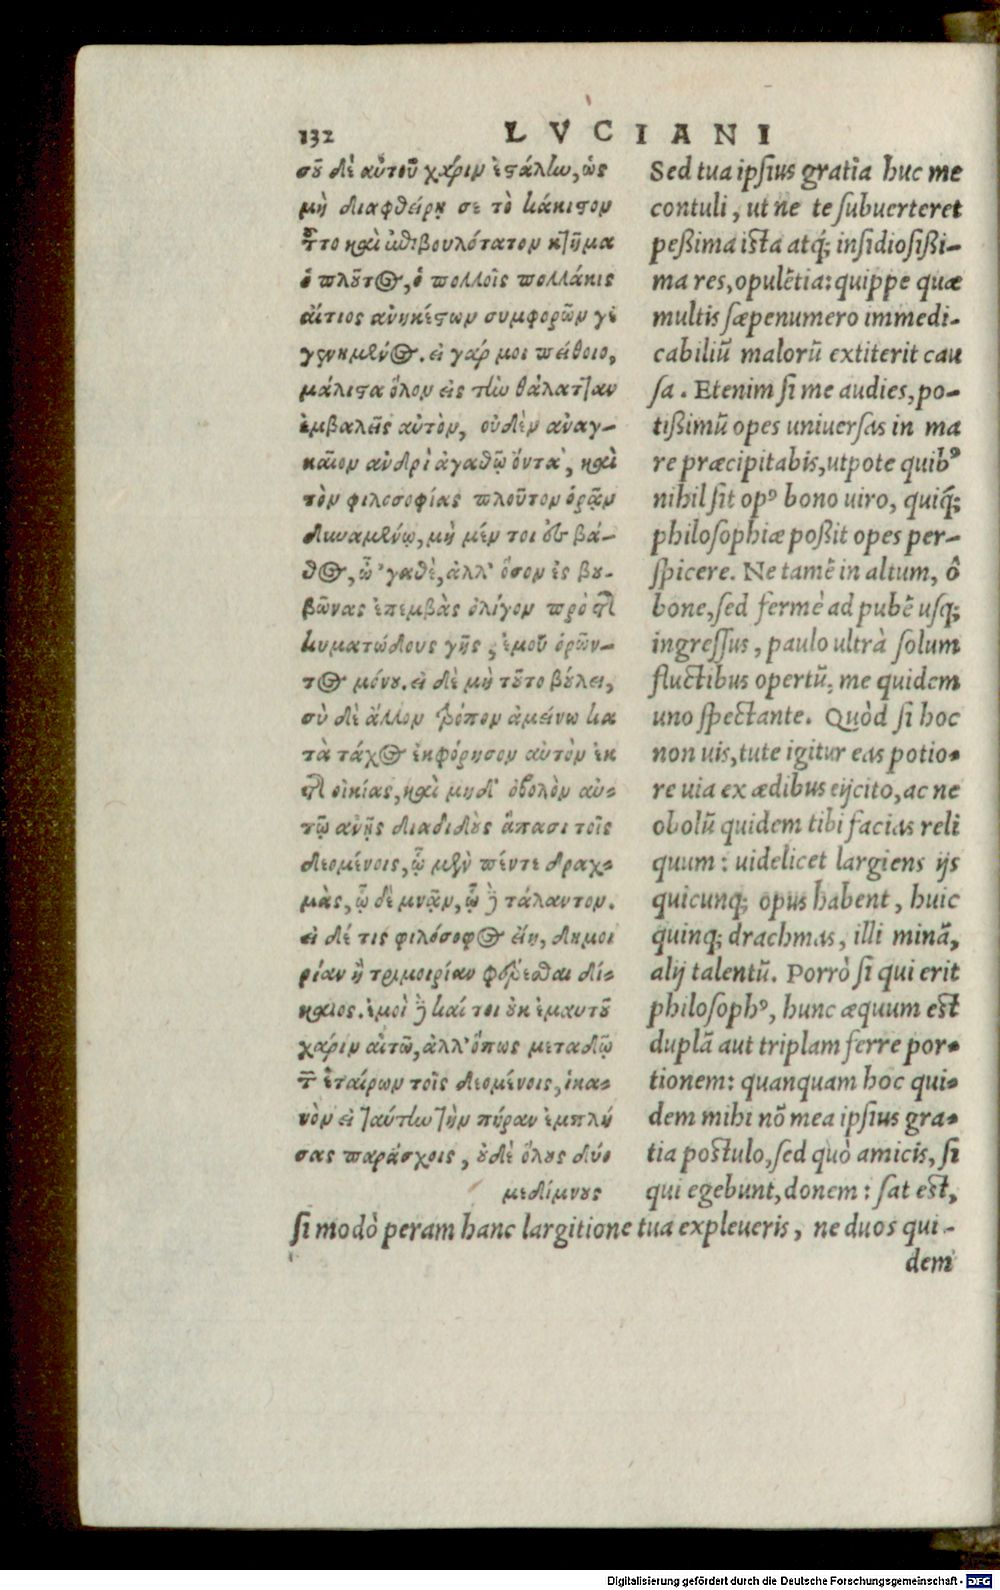 132 LVCIANI
σοῦ δὲ αὐτοῦ χάριν ἐστάλην, ὡς
μὴ διαφθείρῃ σε τὸ κάκιστον
τοῦτο καὶ ἐπιβουλότατον κτῆμα
ὁ πλοῦτος, ὁ πολλοῖς πολλάκις
αἴτιος ἀνηκέστων συμφορῶν γε
γενημένος. εἰ γάρ μοι πείθοιο,
μάλιστα ὅλον εἰς τὴν θάλατταν
ἐμβαλεῖς αὐτὸν, οὐδὲν ἀναγ-
καῖον ἀνδρὶ ἀγαθῷ ὄντα, καὶ
τὸν φιλοσοφίας πλοῦτον ὁρᾷν
δυναμένῳ, μὴ μέν τοι ἐς βά-
θος, ὦ 'γαθὲ, ἀλλ' ὅσον ἐς βου-
βῶνας ἐπεμβὰς ὀλίγον πρὸ τῆς
κυματώδους γῆς, ἐμοῦ ὁρῶν-
τος μόνου. εἰ δὲ μὴ τοῦτο βούλει,
σὺ δὲ ἄλλον τρόπον ἀμείνω κα
τὰ τάχος ἐκφόρησον αὐτὸν ἐκ
τῆς οἰκίας, καὶ μηδ' ὀβολὸν αὑ-
τῷ ἀνῇς διαδιδοὺς ἅπασι τοῖς
δεομένοις, ᾧ μὲν πέντε δραχ-
μὰς, ᾧ δὲ μνᾶν, ᾧ δὲ τάλαντον.
εἰ δέ τις φιλόσοφος εἴη, διμοι
ρίαν ἢ τριμοιρίαν φέρεσθαι δί-
καιος. ἐμοὶ δὲ καί τοι οὐκ ἐμαυτοῦ
χάριν αἰτῶ, ἀλλ' ὅπως μεταδῷ
τῶν ἑταίρων τοῖς δεομένοις, ἱκα-
νὸν εἰ ταύτην τὴν πήραν ἐμπλή
σας παράσχοις, οὐδὲ ὅλους δύο
μεδίμνους
Sed tua ipsius gratia huc me
contuli, ut ne te subuerteret
peßima ista atq́; insidiosißi-
ma res, opulētia: quippe quæ
multis sæpenumero immedi-
cabiliū malorū extiterit cau
sa. Etenim si me audies, po-
tißimū opes uniuersas in ma
re præcipitabis, utpote quibꝰ
nihil sit opꝰ bono uiro, quiq́;
philosophiæ poßit opes per-
spicere. Ne tamē in altum, ô
bone, sed fermè ad pubē usq;
ingressus, paulo ultrà solum
fluctibus opertū, me quidem
uno spectante. Quòd si hoc
non uis, tute igitur eas potio-
re uia ex ædibus eijcito, ac ne
obolū quidem tibi facias reli
quum: uidelicet largiens ijs
quicunq; opus habent, huic
quinq; drachmas, illi minā,
alij talentū. Porrò si qui erit
philosophꝰ, hunc æquum est
duplā aut triplam ferre por-
tionem: quanquam hoc qui-
dem mihi nō mea ipsius gra-
tia postulo, sed quò amicis, si
qui egebunt, donem: sat est,
si modò peram hanc largitione tua expleueris, ne duos qui-
dem
Digitalisierung gefördert durch die Deutsche Forschungsgemeinschaft - DFG